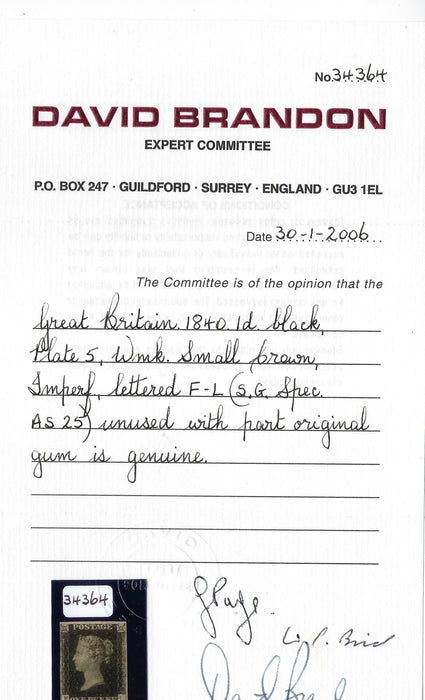 No. 34364
DAVID BRANDON
EXPERT COMMITTEE
P.O. BOX 247 · GUILDFORD · SURREY · ENGLAND · GU3 1EL
Date 30-1-2006
The Committee is of the opinion that the
Great Britain 1840 1d. black,
Plate 5, Wmk. Small Crown,
Imperf, lettered F-L (S.G. Spec.
AS 25) unused with part original
gum is genuine.
34364
POSTAGE
ONE PENNY
David